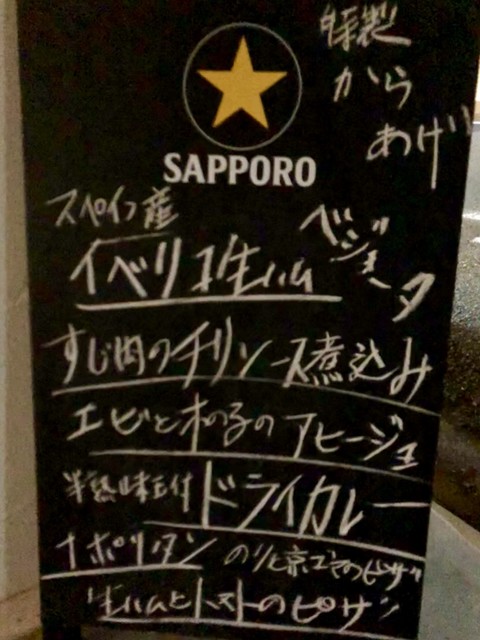 SAPPORO
特製
から
あげ
スペイン産
イベリコ生ハム
ベジョータ
すじ肉のチリソース煮込み
エビと木の子のアヒージョ
半熟味玉付ドライカレー
ナポリタン のりと京ネギのピザ
生ハムとトマトのピザ